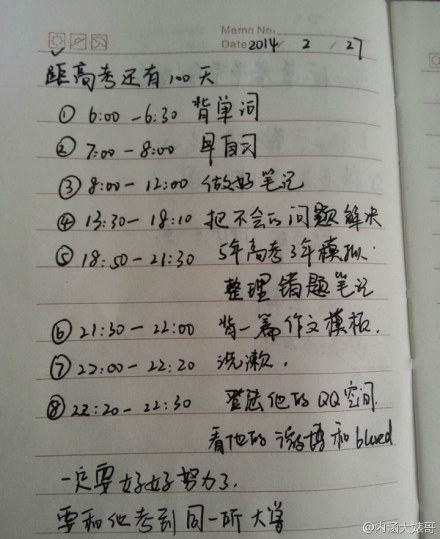 Memo No.
Date 2014 / 2 / 27
距高考还有100天
① 6:00-6:30 背单词
② 7:00-8:00 早自习
③ 8:00-12:00 做好笔记
④ 13:30-18:10 把不会的问题解决
⑤ 18:50-21:30 5年高考3年模拟.
整理错题笔记
⑥ 21:30-22:00 背一篇作文模板.
⑦ 22:00-22:20 洗漱.
⑧ 22:20-22:30 登陆他的QQ空间.
看他的微博和blued
一定要好好努力了.
要和他考到同一所大学
@内涵大婊哥